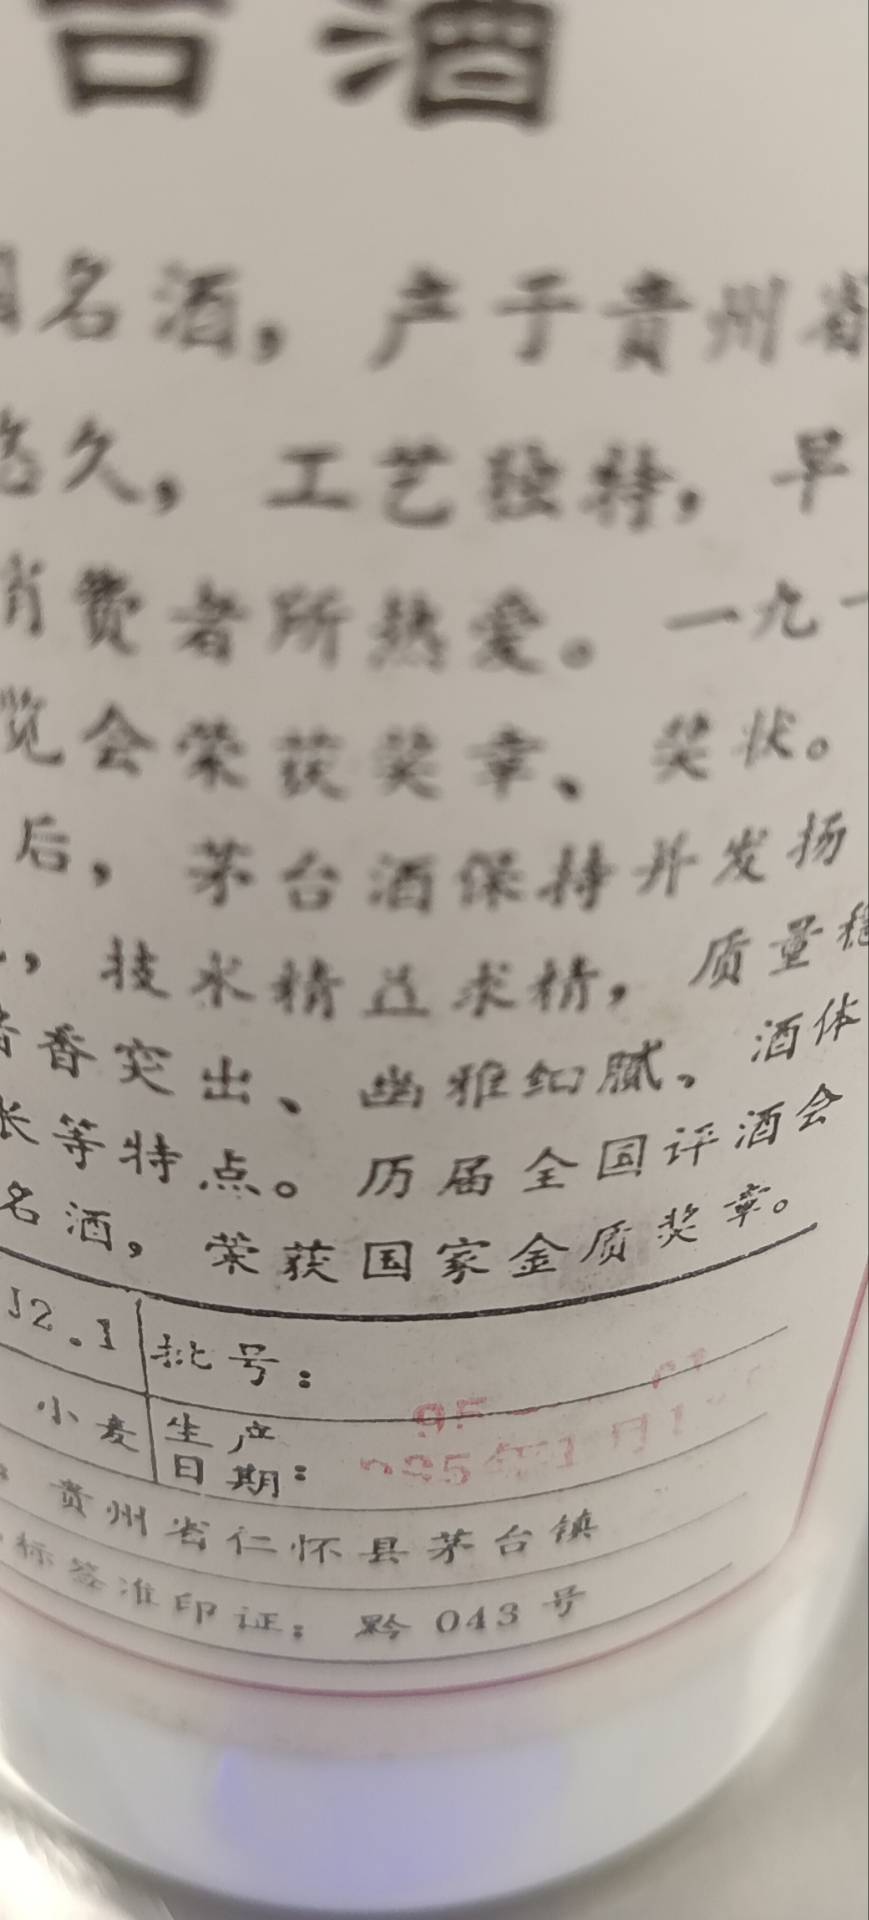 台酒
国名酒，产于贵州省
悠久，工艺独特，早
消费者所热爱。一九一
览会荣获奖章、奖状。
后，茅台酒保持并发扬
，技术精益求精，质量稳
香突出、幽雅细腻、酒体
长等特点。历届全国评酒会
名酒，荣获国家金质奖章。
12.1 批号：95-
小麦 生产日期：995年1月1
：贵州省仁怀县茅台镇
标签准印证：黔043号